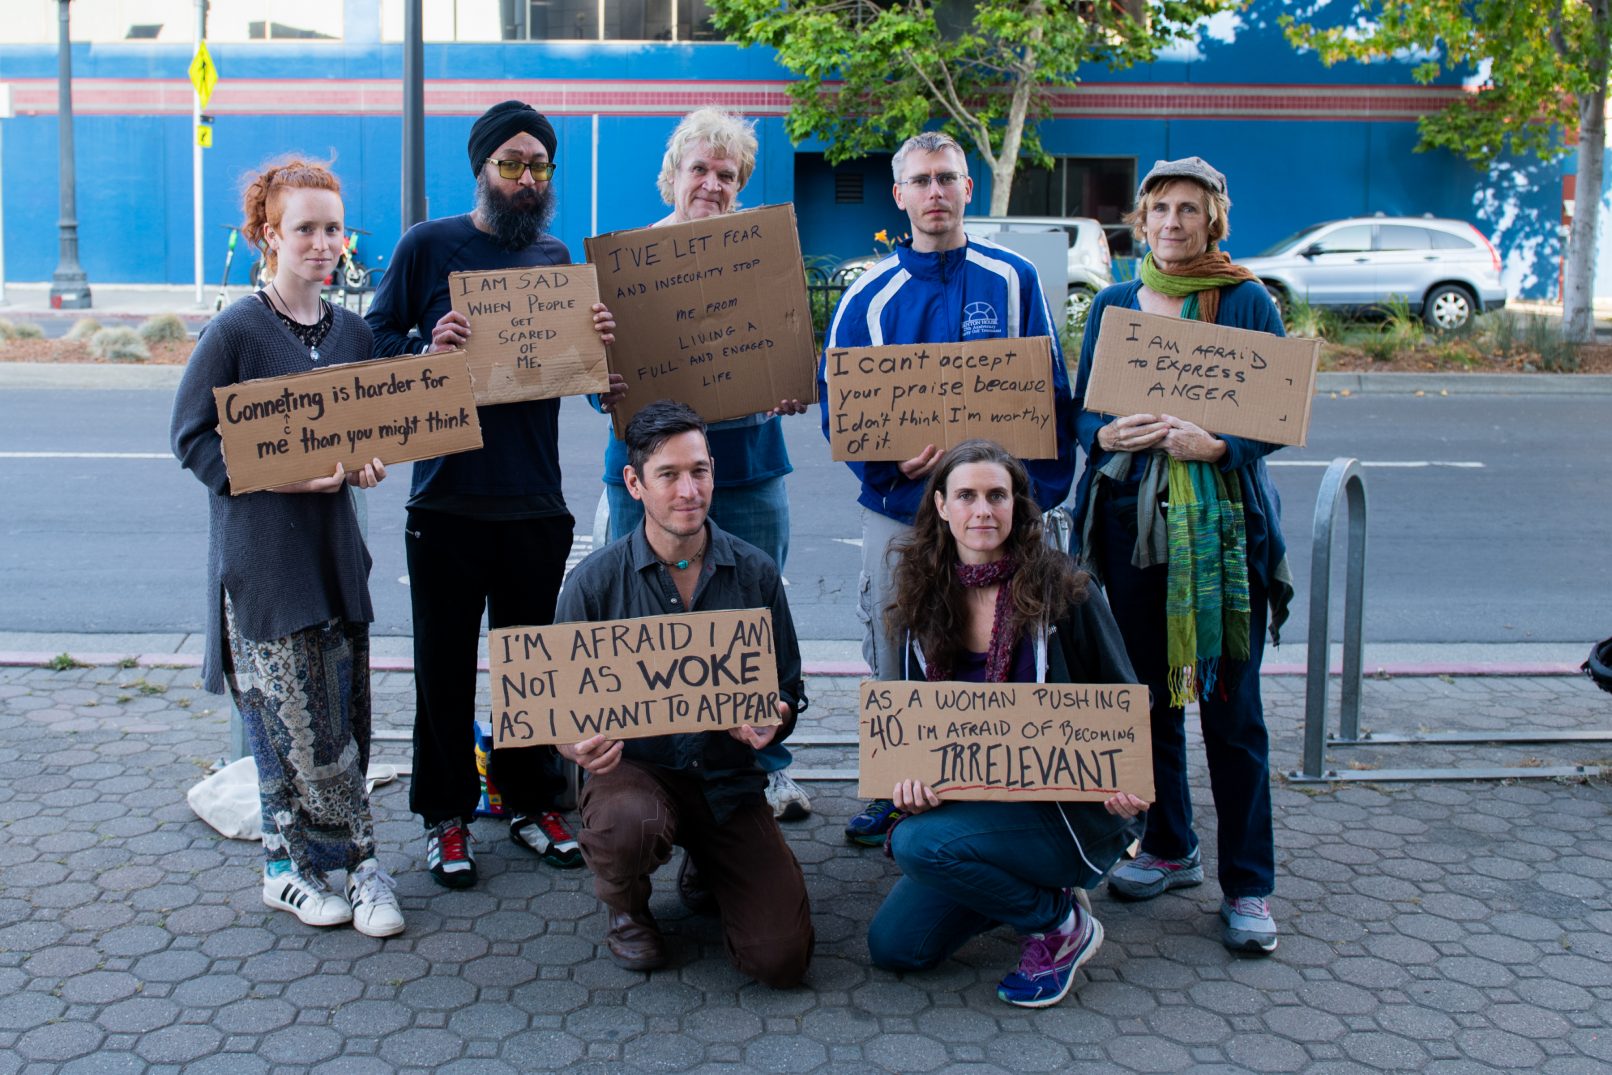 I AM SAD
WHEN PEOPLE
GET
SCARED
OF
ME.
I'VE LET FEAR
AND INSECURITY STOP
ME FROM
LIVING A
FULL AND ENGAGED
LIFE
I can't accept
your praise because
I don't think I'm worthy
of it.
I AM AFRAID
to EXPRESS
ANGER
Conneting is harder for
c
me than you might think
I'M AFRAID I AM
NOT AS WOKE
AS I WANT TO APPEAR
AS A WOMAN PUSHING
40 I'M AFRAID OF BECOMING
IRRELEVANT